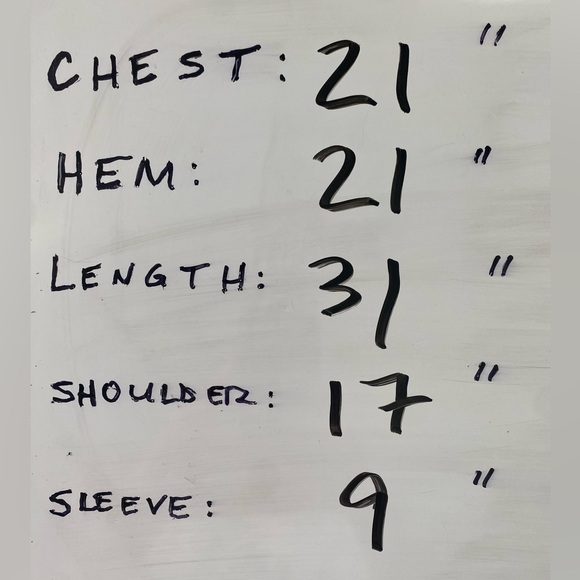 CHEST: 21 "
HEM: 21 "
LENGTH: 31 "
SHOULDER: 17 "
SLEEVE: 9 "